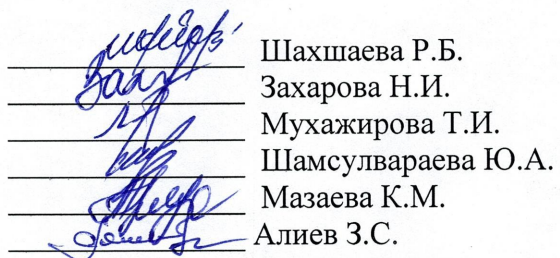 Шахшаева Р.Б.
Захарова Н.И.
Мухажирова Т.И.
Шамсулвараева Ю.А.
Мазаева К.М.
Алиев З.С.